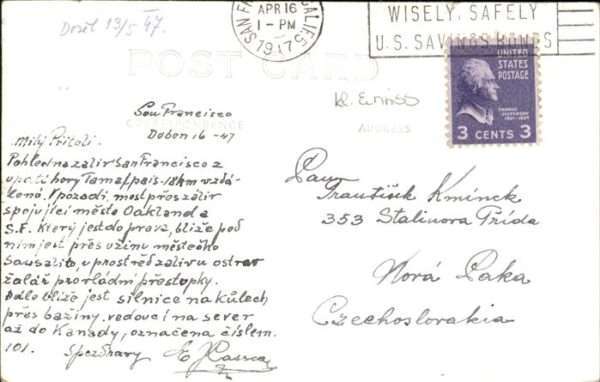 Došel 13/5 47.
SAN FRANCISCO CALIF. 5
APR 16
1 - PM
1947
WISELY, SAFELY
U.S. SAVINGS BONDS
POST CARD
ADDRESS
UNITED
STATES
POSTAGE
THOMAS
JEFFERSON
3 CENTS 3
San Francisco
Duben 16 -47
Milý Příteli.
Pohled na záliv San Francisco z
hory Tamalpais - 18 km vzdá-
lená. V pozadí most přes záliv
spojující město Oakland a
S.F. Který jest do prava, blíže pod
ním jest přes užinu městečko
Sausalito, uprostřed zálivu ostrov
žalář pro vládní přestupky.
Podle blíže jest silnice na kůlech
přes bažiny, vedoucí na sever
až do Kanady, označena číslem
101.
Pan
František Kmínek
353 Stalinova Třída
Nová Paka
Czechoslovakia